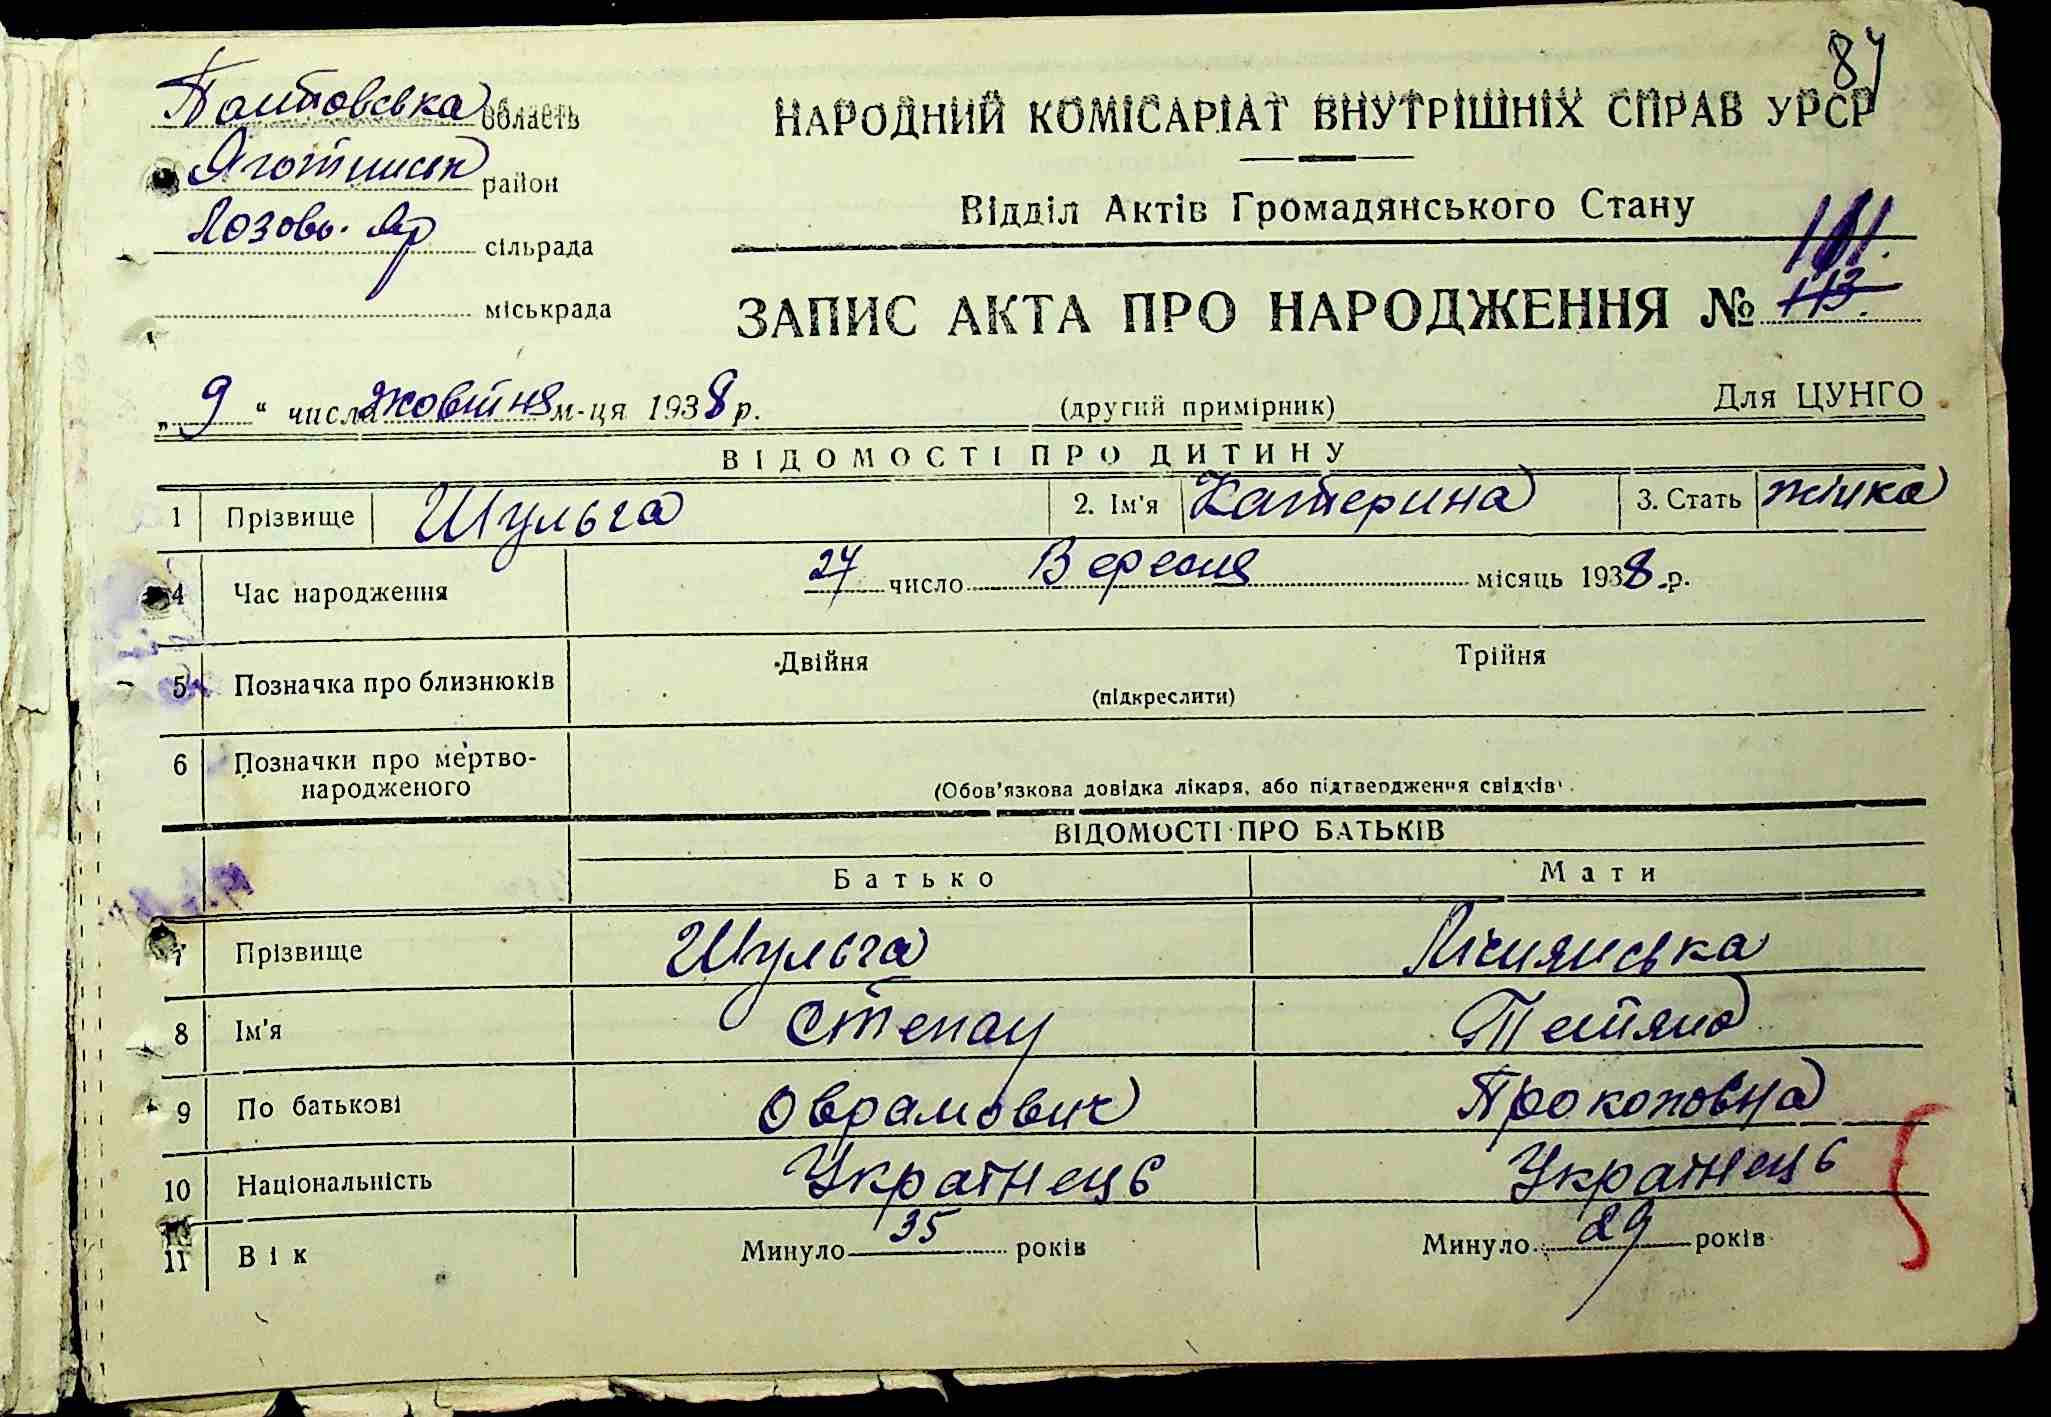 87
Полтовська область
Яготинськ район
Лозово. Яр сільрада
міськрада
НАРОДНИЙ КОМІСАРІАТ ВНУТРІШНІХ СПРАВ УРСР
Відділ Актів Громадянського Стану
ЗАПИС АКТА ПРО НАРОДЖЕННЯ № 113. 101.
„ 9 “ числа жовтня м-ця 1938 р. (другий примірник) Для ЦУНГО
ВІДОМОСТІ ПРО ДИТИНУ
1 Прізвище Шульга 2. Ім'я Катерина 3. Стать жінка
4 Час народження 27 число Вересня місяць 1938 р.
5 Позначка про близнюків Двійня Трійня
(підкреслити)
6 Позначки про мертво-
народженого (Обов'язкова довідка лікаря, або підтвердження свідків).
ВІДОМОСТІ ПРО БАТЬКІВ
Батько Мати
7 Прізвище Шульга
8 Ім'я Степан Тетяна
9 По батькові Оврамович Прокоповна
10 Національність Українець Українець
11 Вік Минуло 35 років Минуло 29 років